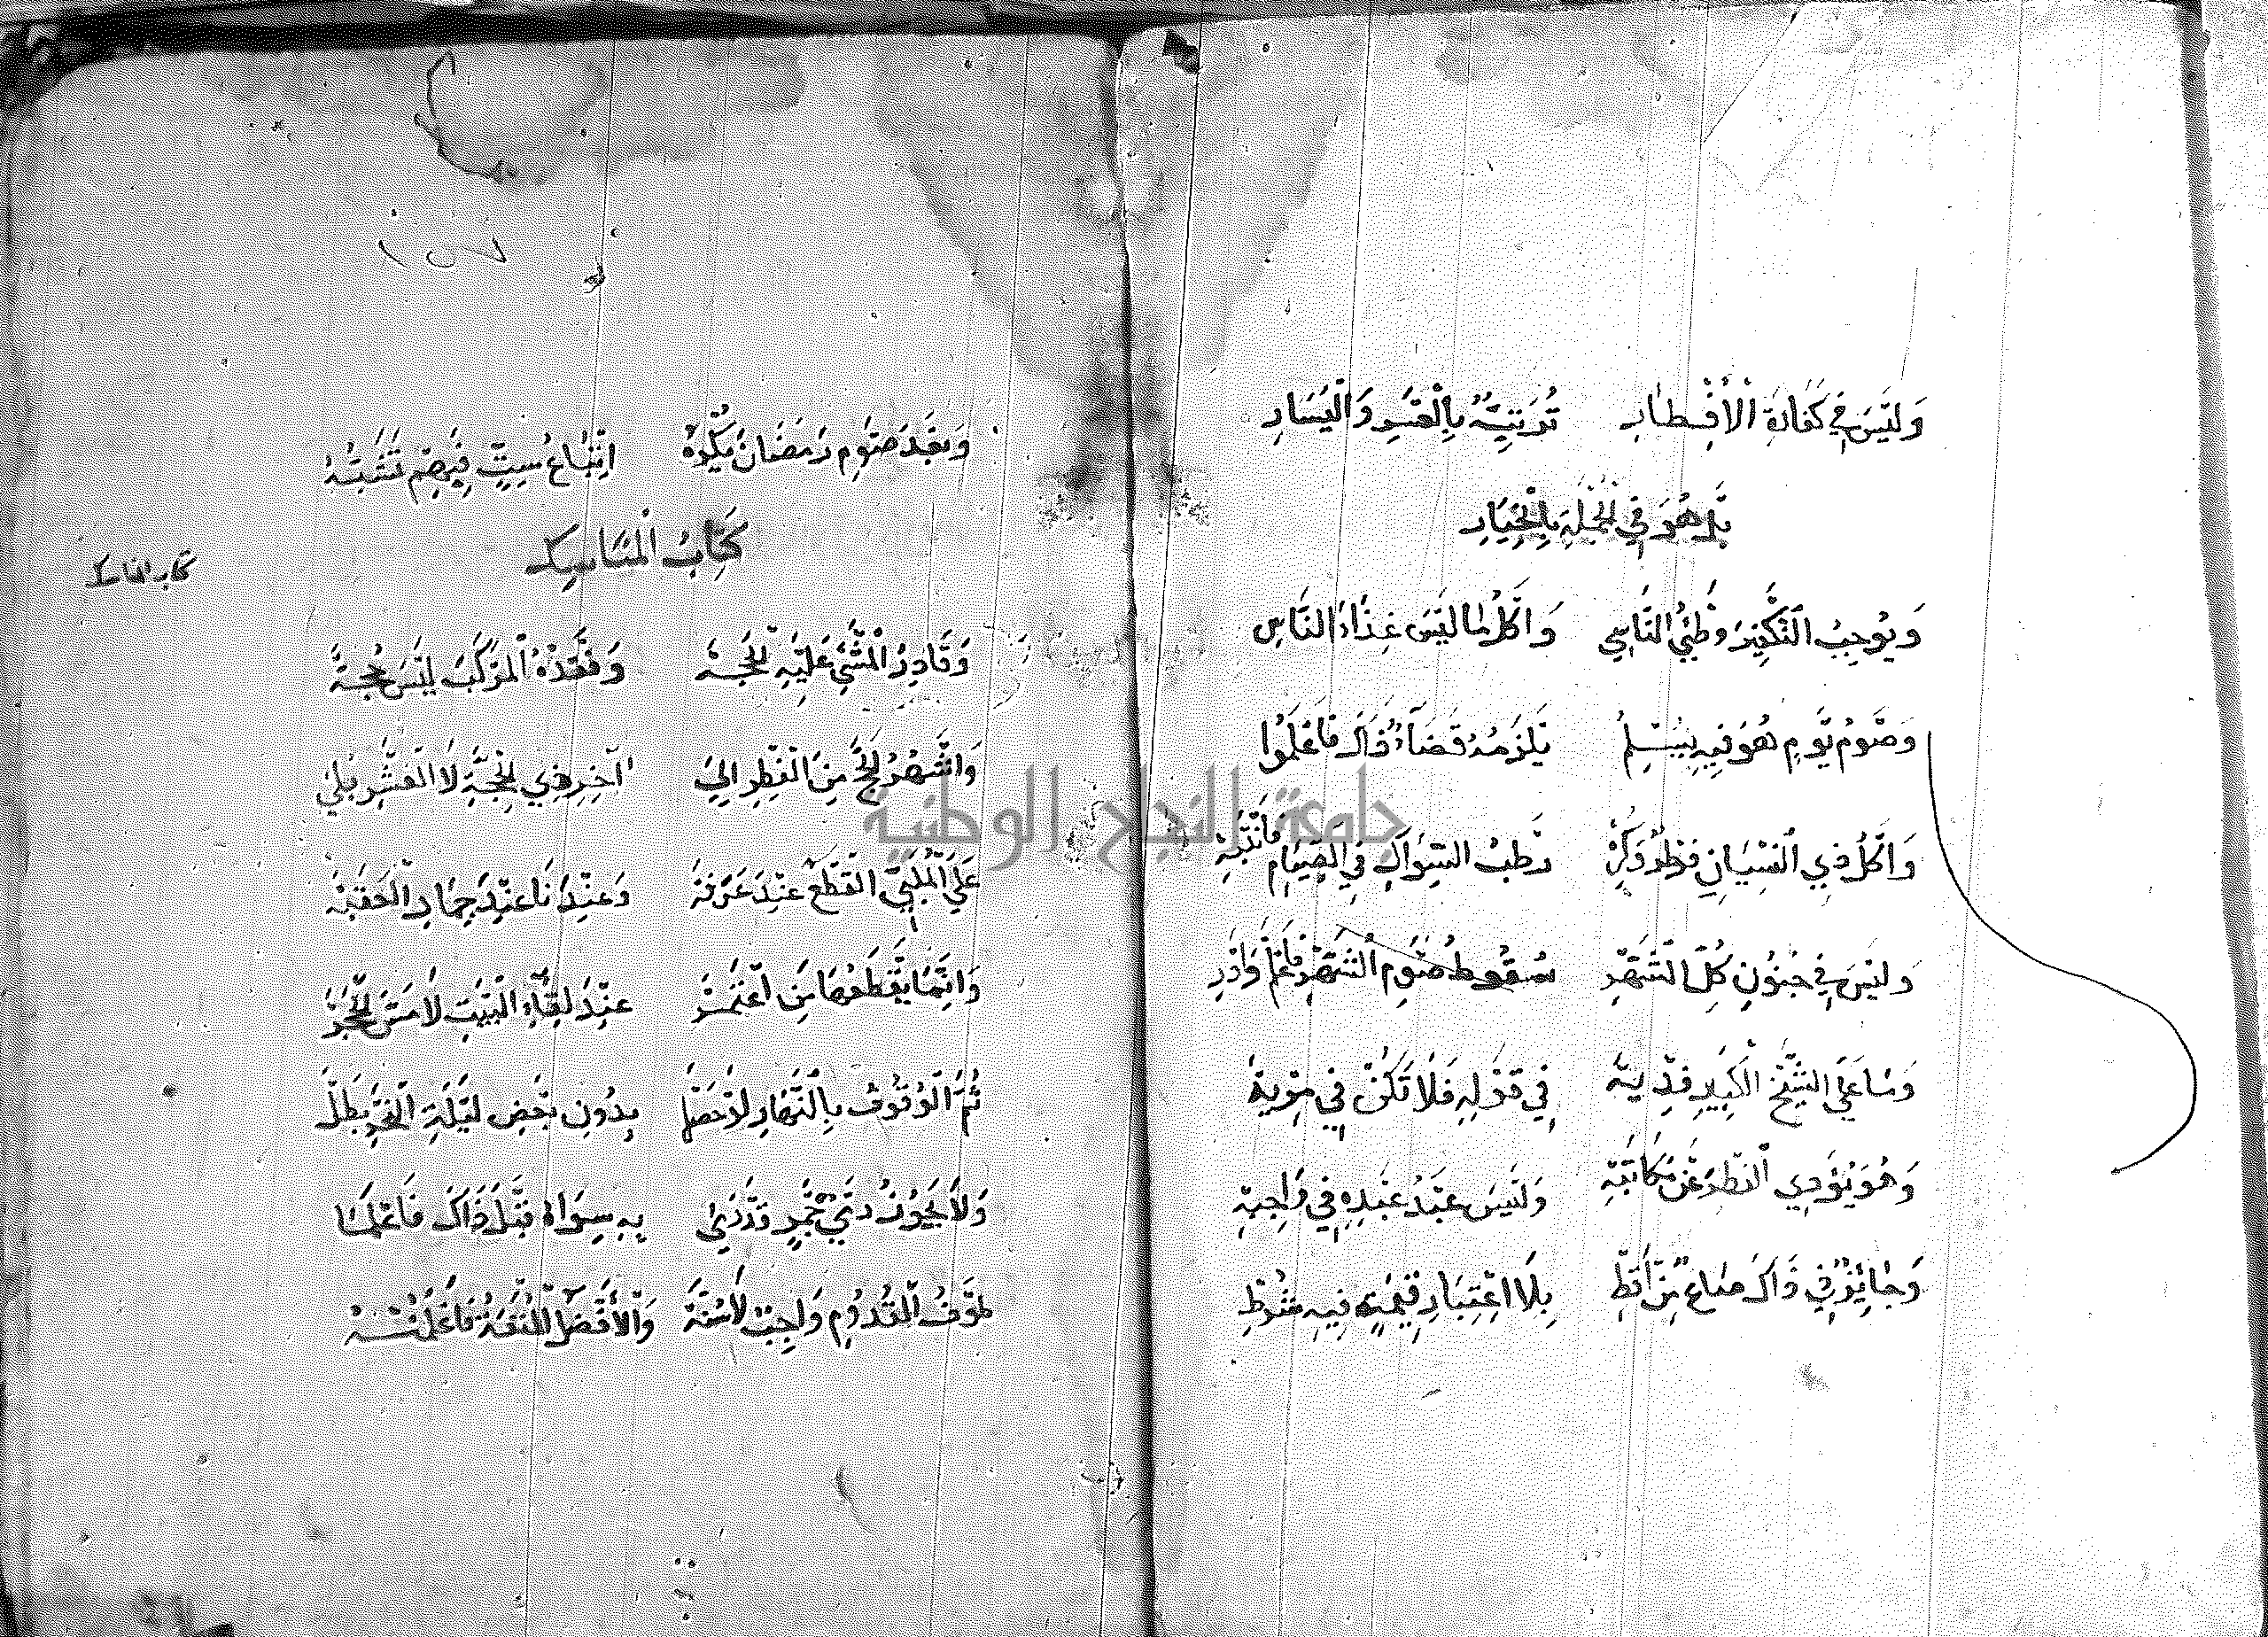 وَلَيْسَ فِي كَفَّارَةِ الْأَفْطَارِ تُرَتِّبُهُ بِالْعُسْرِ وَالْيَسَارِ
بَلْ هُوَ فِي الْجُمْلَةِ بِالْخِيَارِ
وَيُوجِبُ التَّكْفِيرَ وَطْئُ النَّاسِي وَاكْلُ مَا لَيْسَ غِذَاءَ النَّاسِ
وَصَوْمُ يَوْمٍ هُوَ فِيهِ يُسْلِمُ يَلْزَمُهُ قَضَاءُ ذَاكَ فَاعْلَمُوا
وَاكْلُ ذِي النِّسْيَانِ فِطْرٌ وَكُرِهْ رَطْبُ السِّوَاكِ فِي الصِّيَامِ فَانْتَبِهْ
وَلَيْسَ فِي جُنُونِ كُلِّ الشَّهْرِ سُقُوطُ صَوْمِ الشَّهْرِ فَاعْلَمْ وَادْرِ
وَمَا عَلَى الشَّيْخِ الْكَبِيرِ فِدْيَةٌ فِي قَوْلِهِ فَلَا تَكُنْ فِي مِرْيَةٍ
وَهُوَ يُؤَدِّي الْفِطْرَ عَنْ مُكَاتَبِهْ وَلَيْسَ عَبْدُ عَبْدِهِ فِي وَاجِبِهْ
وَجَائِزٌ فِي ذَاكَ صَاعٌ مِنْ أَقِطْ بِلَا اعْتِبَارِ قِيمَةٍ فِيهِ شُرِطْ
١٥٧
وَبَعْدَ صَوْمِ رَمَضَانَ يُكْرَهُ اتْبَاعُ سِتٍّ فِيهِمُ تَشَبُّهُ
كِتَابُ الْمَنَاسِكِ
كتاب المناسك
وَقَادِرُ الْمَشْيِ عَلَيْهِ الْحَجَّهْ وَفَقْدُهُ الْمَرْكَبَ لَيْسَ حُجَّهْ
وَاشْهُرُ الْحَجِّ مِنَ الْفِطْرِ الَى آخِرِ ذِي الْحِجَّةِ لَا الْعَشْرِ بَلَى
عَلَى الْمُلَبِّي الْقَطْعُ عِنْدَ عَرَفَهْ وَعِنْدَنَا عِنْدَ جِمَارِ الْعَقَبَهْ
وَانَّمَا يَقْطَعُهَا مَنِ اعْتَمَرْ عِنْدَ لِقَاءِ الْبَيْتِ لَا مَسِّ الْحَجَرْ
ثُمَّ الْوُقُوفُ بِالنَّهَارِ لَوْ حَصَلْ بِدُونِ بَعْضِ لَيْلَةِ النَّحْرِ بَطَلْ
وَلَا يَجُوزُ رَمْيُ جَمْرٍ قَدْ رَمَى بِهِ سِوَاهُ قَبْلَ ذَاكَ فَاعْلَمَا
طَوْفُ الْقُدُومِ وَاجِبٌ لَا سُنَّهْ وَالْأَفْضَلُ الْمُتْعَةُ فَاعْلَمَنَّهْ
جامعة النجاح الوطنية